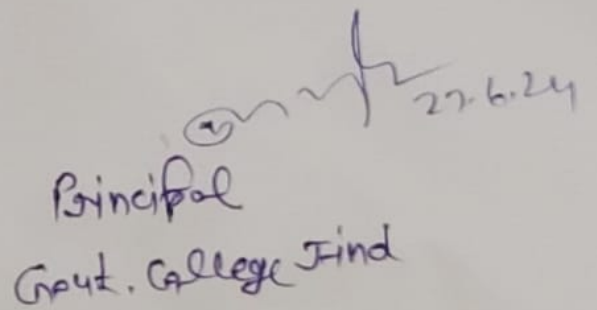 27.6.24
Principal
Govt. College Jind